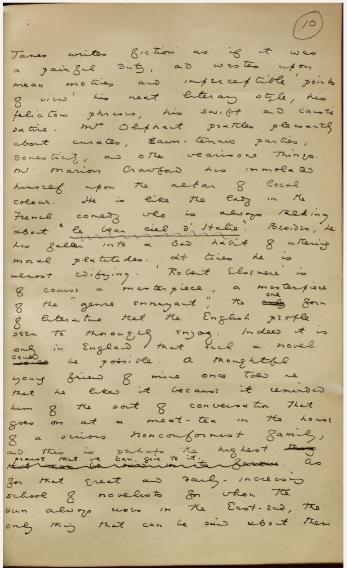 10
James writes fiction as if it was
a painful duty, and wastes upon
mean motives and imperceptible 'points
of view' his neat literary style, his
felicitous phrases, his swift and caustic
satire. Mrs Oliphant prattles pleasantly
about curates, lawn-tennis parties,
domesticity, and other wearisome things.
Mr. Marion Crawford has immolated
himself upon the altar of local
colour. He is like the lady in the
French comedy who is always talking
about "le beau ciel d'Italie". Besides, he
has fallen into a bad habit of uttering
moral platitudes. At times he is
almost edifying. 'Robert Elsmere' is
of course a masterpiece, a masterpiece
of the "genre ennuyant", the one form
of literature that the English people
seem to thoroughly enjoy. Indeed it is
only in England that such a novel
could be possible. A thoughtful
young friend of mine once told me
that he liked it because it reminded
him of the sort of conversation that
goes on at a meat-tea in the house
of a serious Nonconformist family,
and this is perhaps the highest
praise that we can give to it. As
for that great and daily-increasing
school of novelists for whom the
sun always rises in the East-end, the
only thing that can be said about them